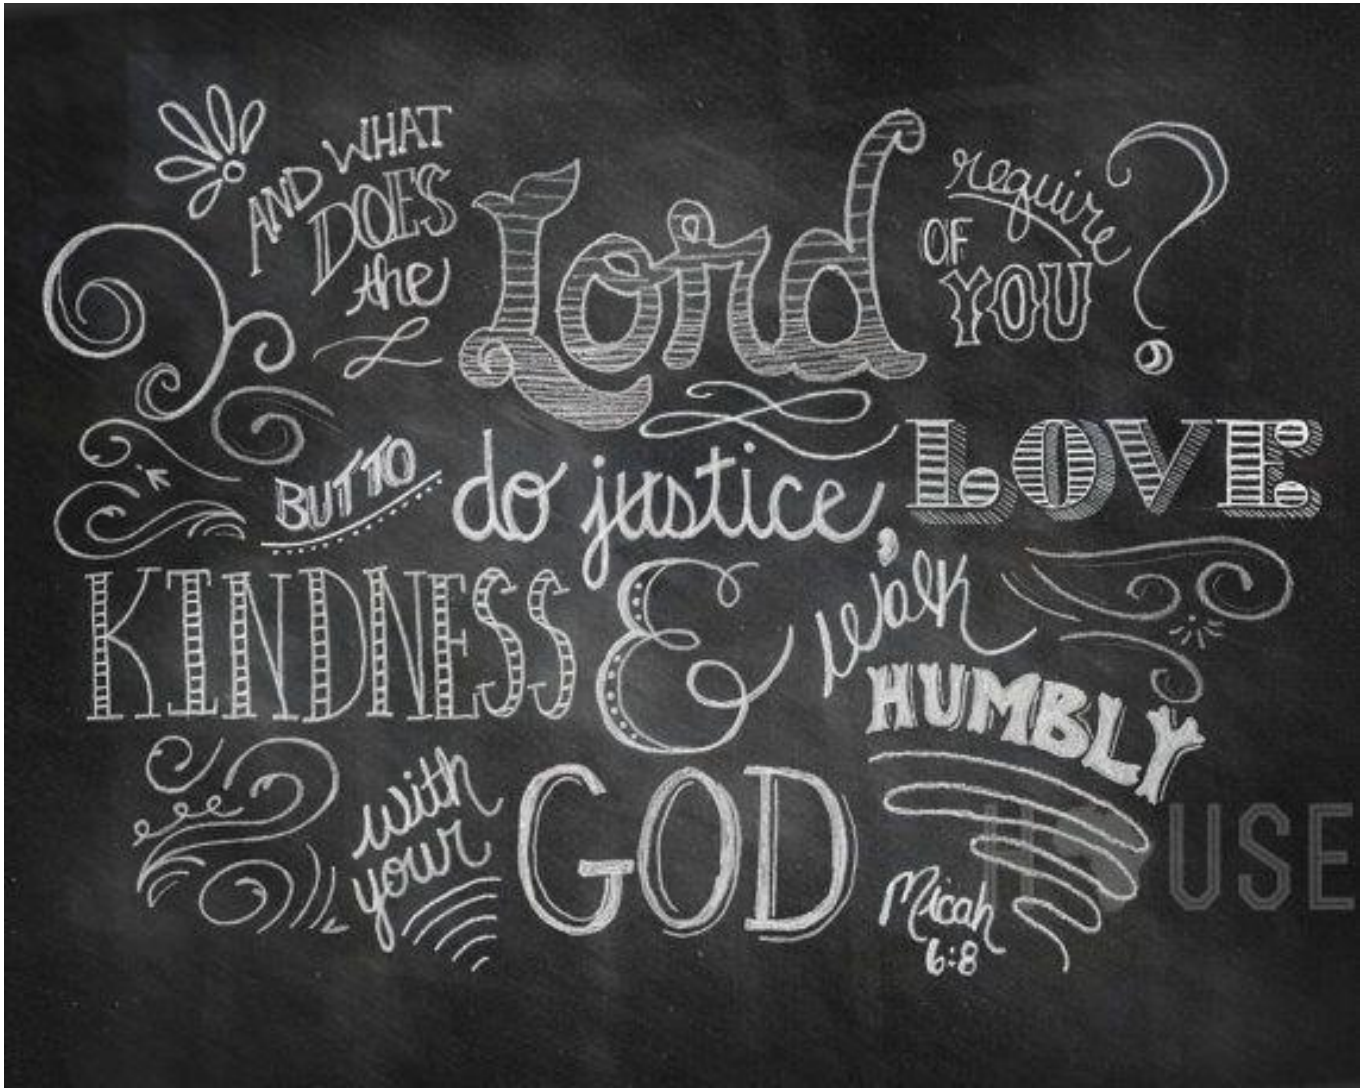 AND WHAT DOES the Lord require OF YOU?
BUT TO do justice, LOVE
KINDNESS & walk HUMBLY
with your GOD
Micah 6:8
USE